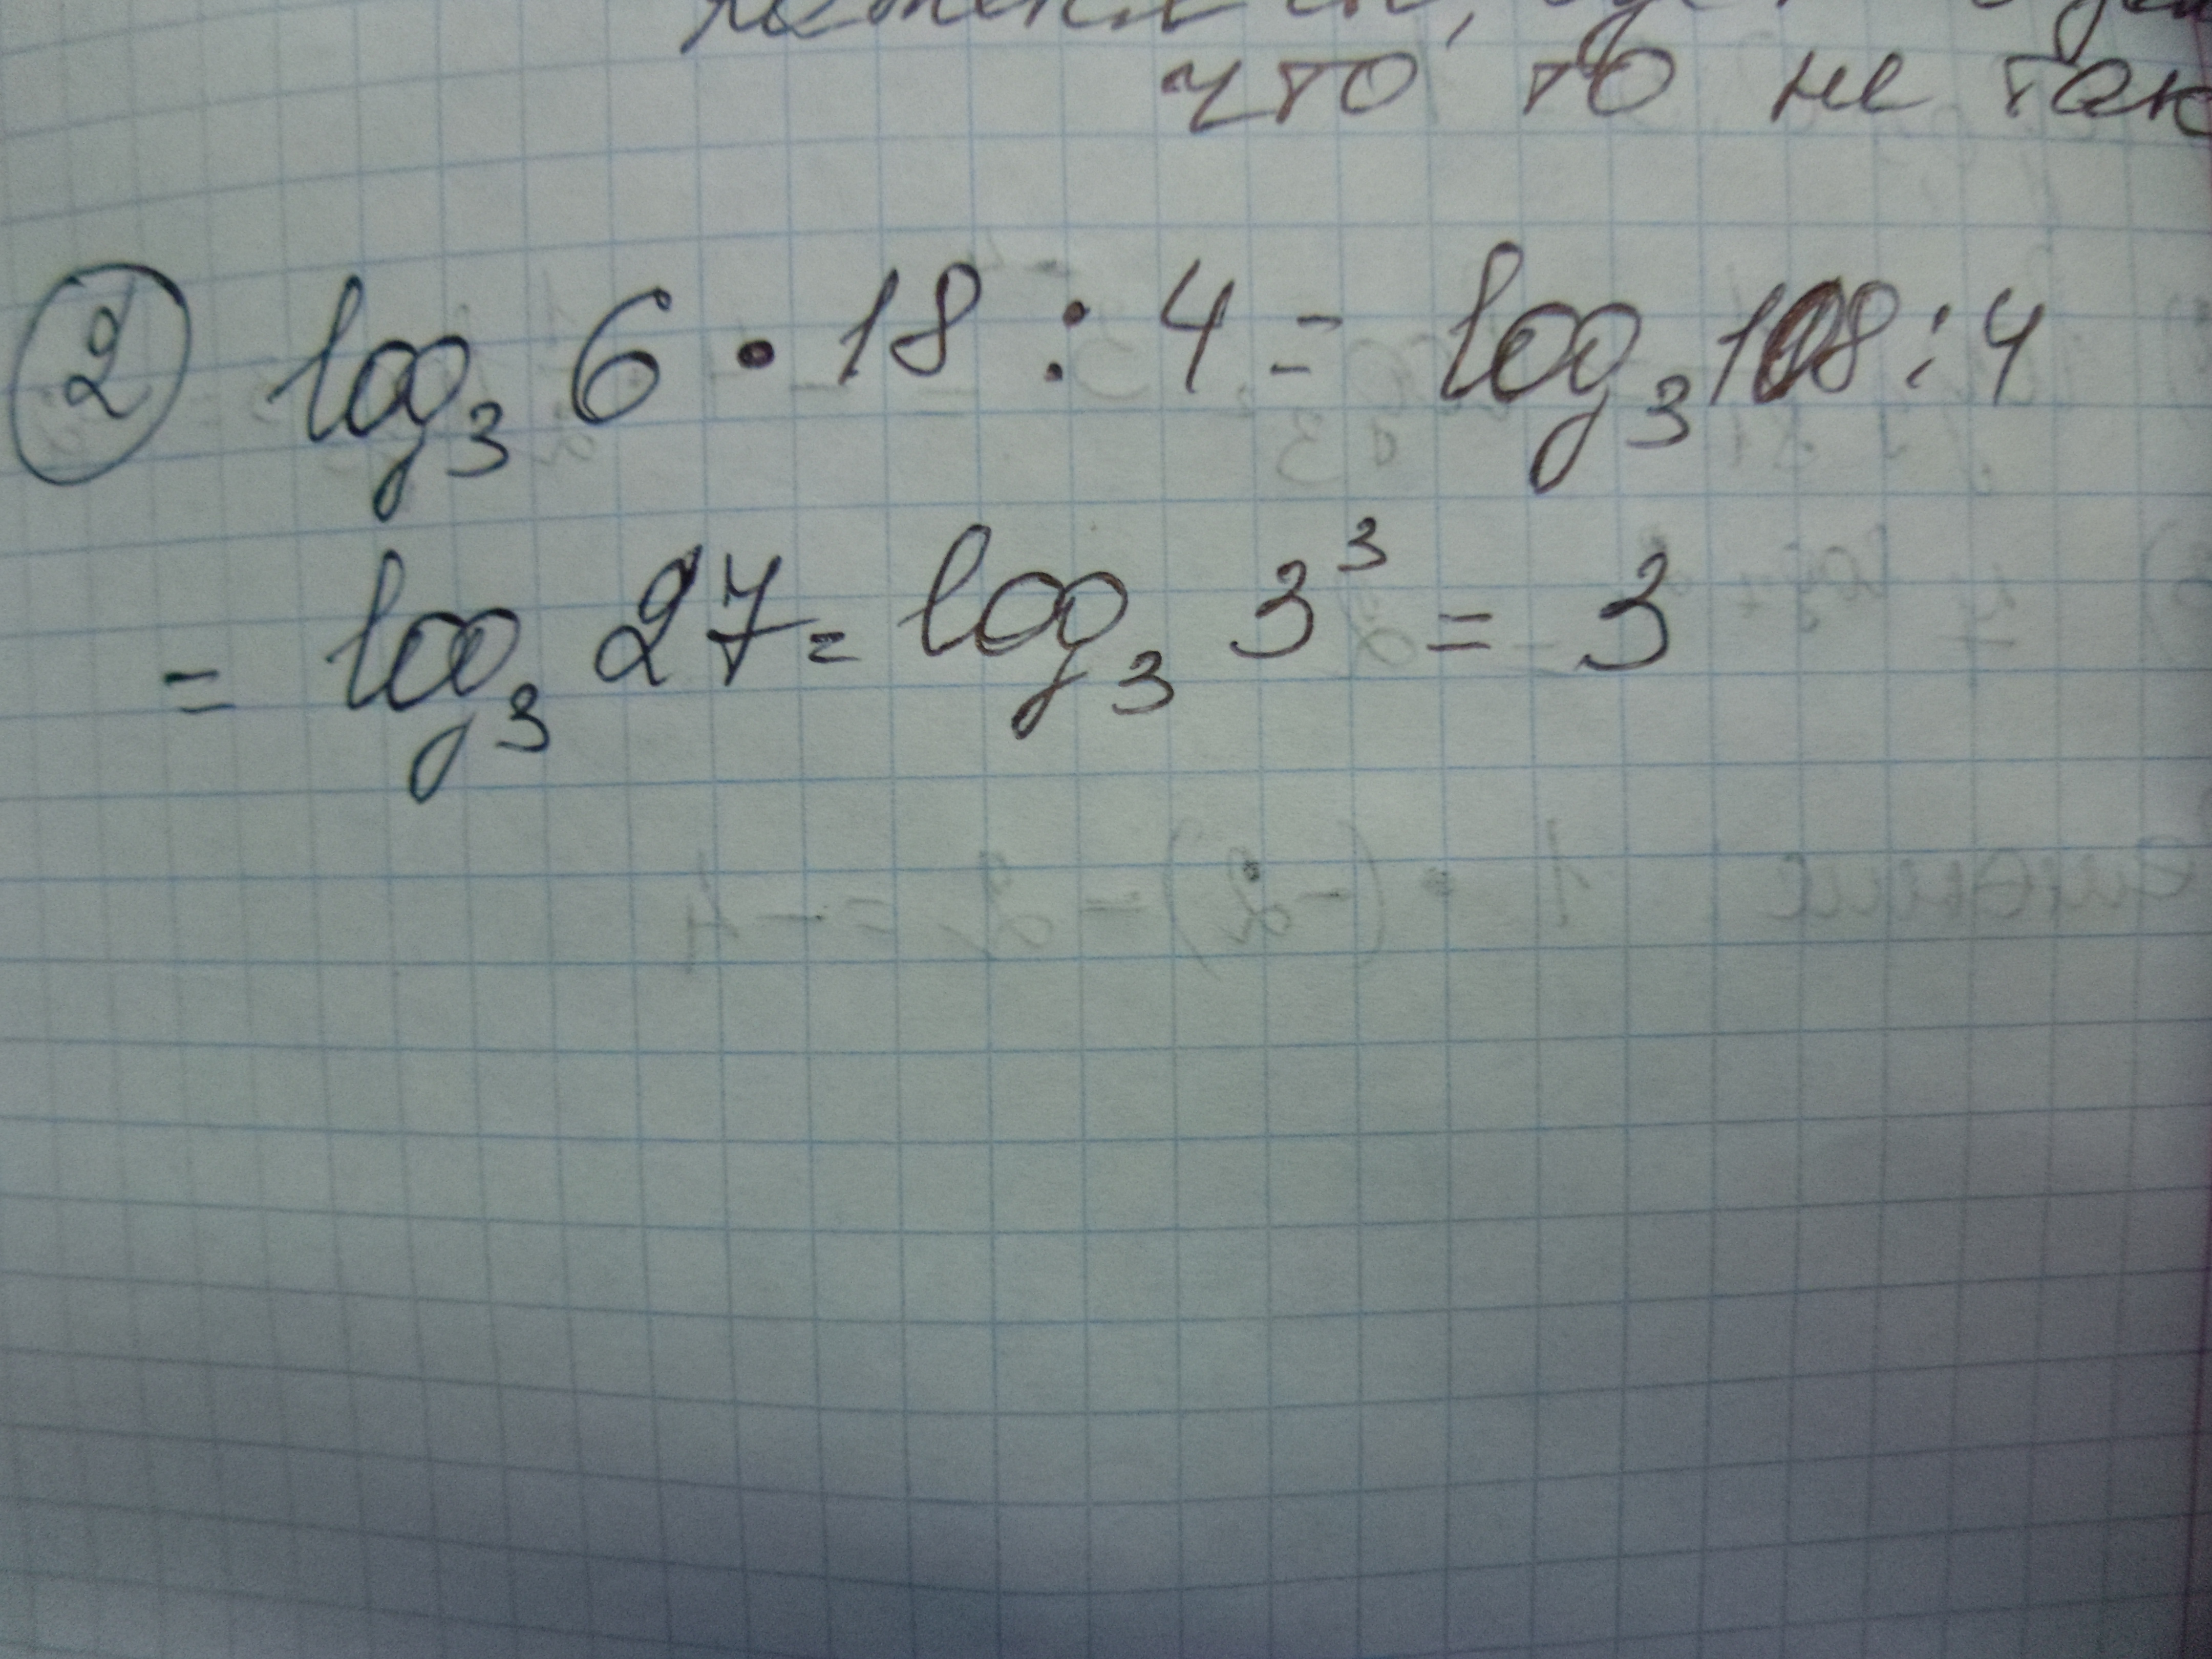 что то не так
② log₃ 6 • 18 : 4 = log₃ 108 : 4
= log₃ 27 = log₃ 3³ = 3